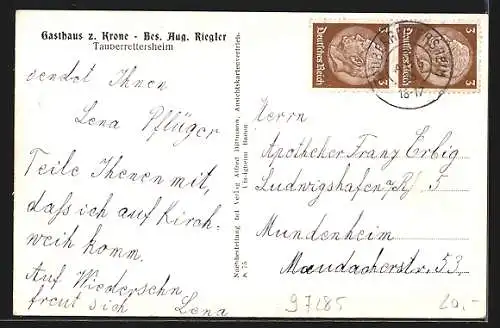 Gasthaus z. Krone - Bes. Aug. Riegler
Tauberrettersheim
sendet Ihnen
Lena Pflüger
Teile Ihenen mit,
daß ich auf Kirch-
weih komm.
Auf Wiedersehn
freut sich Lena
Nachbestellung bei Verlag Alfred
A 75
Deutsches Reich
3
Deutsches Reich
3
18-17
Herrn
Apotheker Franz Erbig
Ludwigshafen a/Rh 5
Mundenheim
Maudacherstr. 53.
97285
20,-